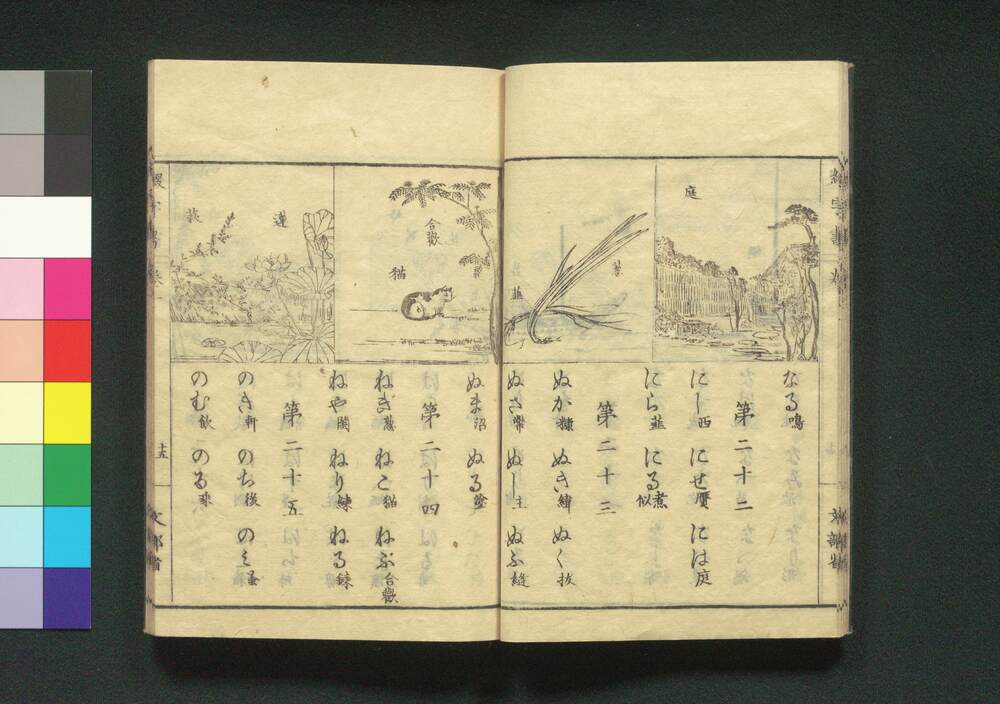 庭
葱
韮
合歡
猫
蓮
萩
なる鳴
第二十二
にし西 にせ贋 には庭
にら韮 にる煮似
第二十三
ぬか糠 ぬき緯 ぬく抜
ぬさ幣 ぬし主 ぬふ縫
ぬま沼 ぬる塗
第二十四
ねぎ葱 ねこ猫 ねぶ合歡
ねや閨 ねり練 ねる錬
第二十五
のき軒 のち後 のミ蚤
のむ飲 のる乗
十五
文部省